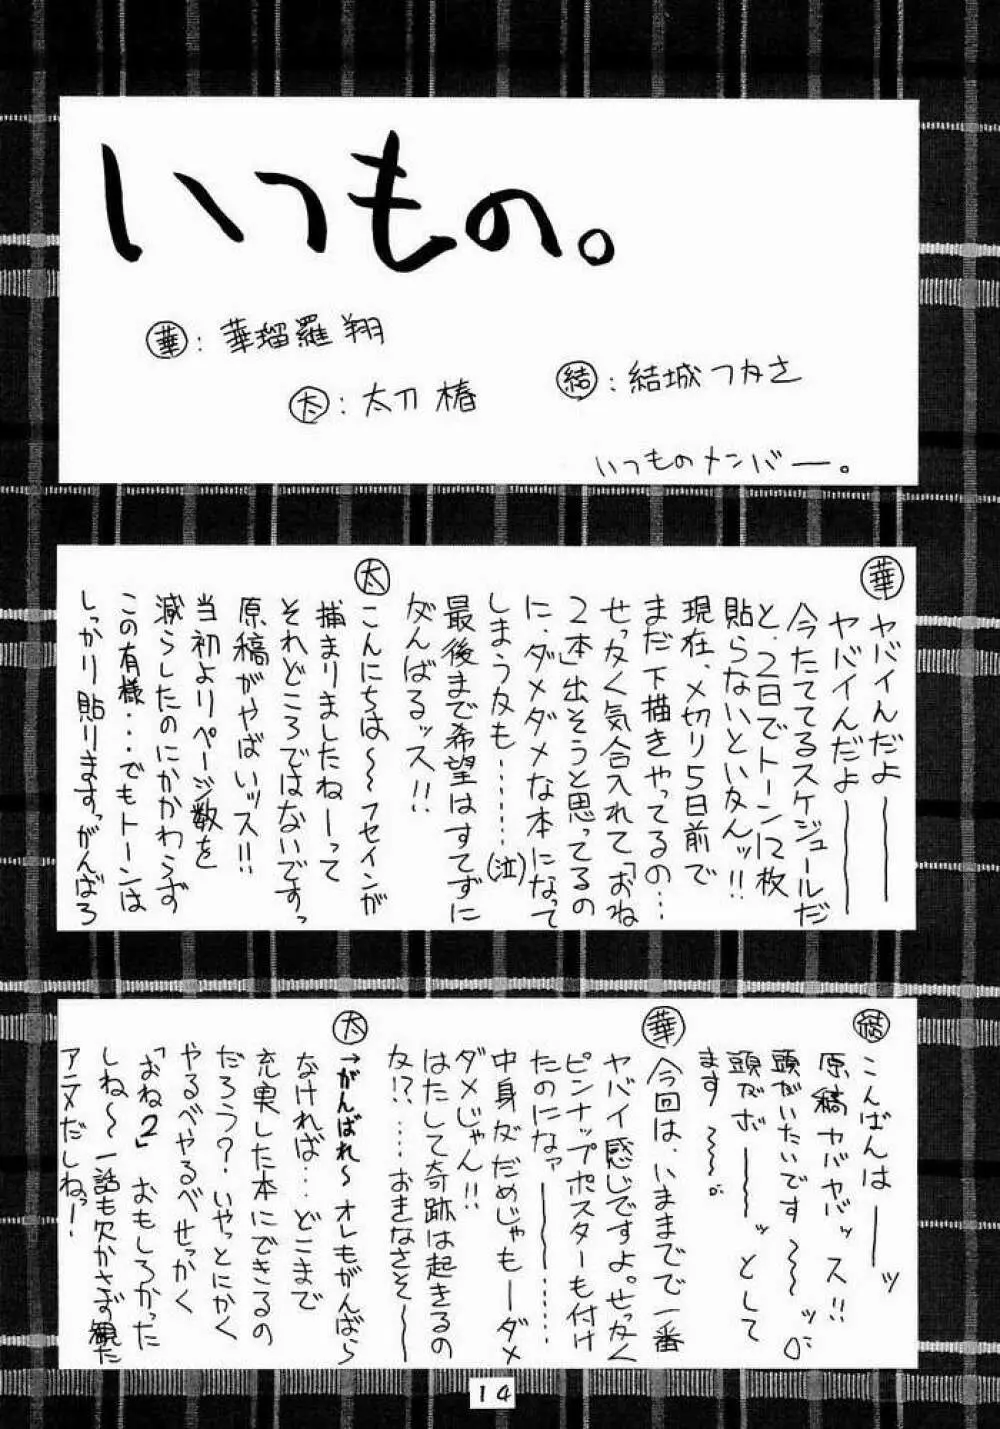 いつもの。
華：華瑠羅翔
太：太刀椿
結：結城つかさ
いつものメンバー。
華
ヤバイんだよ―――
ヤバイんだよ―――
今たててるスケジュールだ
と、2日でトーン12枚
貼らないといかんッ!!
現在、〆切り5日前で
まだ下描きやってるの…
せっかく気合入れて「おね
2本」出そうと思ってるの
に、ダメダメな本になって
しまうかも………(泣)
最後まで希望はすてずに
がんばるッス!!
太
こんにちは～～フセインが
捕まりましたねーって
それどころではないですっ
原稿がやばいッス!!
当初よりページ数を
減らしたのにかかわらず
この有様・・・でもトーンは
しっかり貼りますっがんばろ
結
こんばんは――ッ
原稿ヤバヤバッス!!
頭がいたいです～～ッ
頭がボ――ッとして
ます～～。
華
今回は、いままでで一番
ヤバイ感じですよ。せっかく
ピンナップポスターも付け
たのになァ―――………
中身がだめじゃもーダメ
ダメじゃん!!
はたして奇跡は起きるの
か!?……おきなさそ～～
太
→がんばれ～オレもがんばら
なければ…どこまで
充実した本にできるの
だろう?いやっとにかく
やるべやるべせっかく
「おね2」おもしろかった
しね～～一話も欠かさず観た
アニメだしねっー!
14